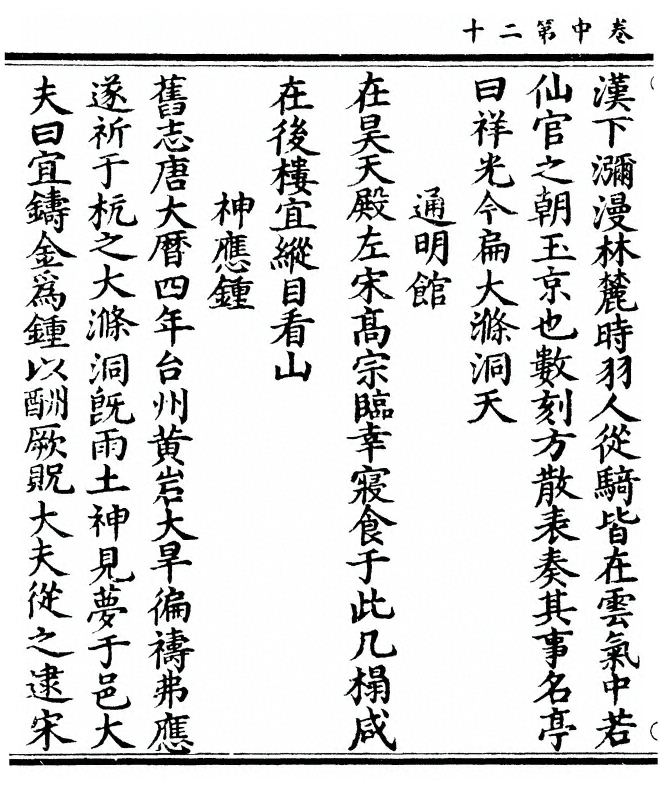 卷中第二十
漢下瀰漫林麓時羽人從騎皆在雲氣中若
仙官之朝玉京也數刻方散表奏其事名亭
曰祥光今扁大滌洞天
通明館
在昊天殿左宋髙宗臨幸寢食于此几榻咸
在後樓宜縱目看山
神應鍾
舊志唐大曆四年台州黄岩大旱徧禱弗應
遂祈于杭之大滌洞旣雨土神見夢于邑大
夫曰宜鑄金爲鍾以酬厥貺大夫從之逮宋